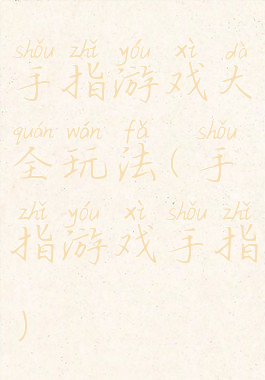 shǒu zhǐ yóu xì dà
手指游戏大
quán wán fǎ shǒu
全玩法(手
zhǐ yóu xì shǒu zhǐ
指游戏手指
)